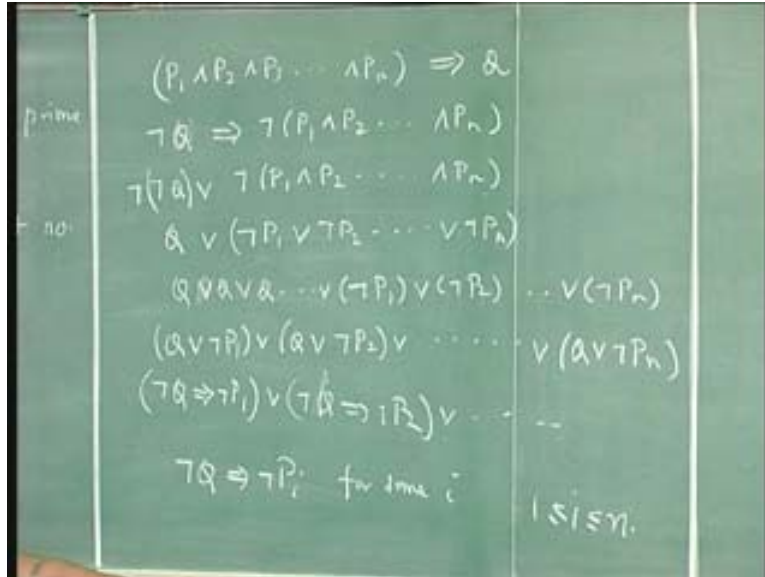 (P₁ ∧ P₂ ∧ P₃ ... ∧ Pₙ) ⇒ Q
prime
¬Q ⇒ ¬(P₁ ∧ P₂ ... ∧ Pₙ)
¬(¬Q) ∨ ¬(P₁ ∧ P₂ .... ∧ Pₙ)
no.
Q ∨ (¬P₁ ∨ ¬P₂ .... ∨ ¬Pₙ)
Q ∨ Q ∨ Q ... ∨ (¬P₁) ∨ (¬P₂) .. ∨ (¬Pₙ)
(Q ∨ ¬P₁) ∨ (Q ∨ ¬P₂) ∨ ...... ∨ (Q ∨ ¬Pₙ)
(¬Q ⇒ ¬P₁) ∨ (¬Q ⇒ ¬P₂) ∨ ....
¬Q ⇒ ¬Pᵢ for some i 1 ≤ i ≤ n.